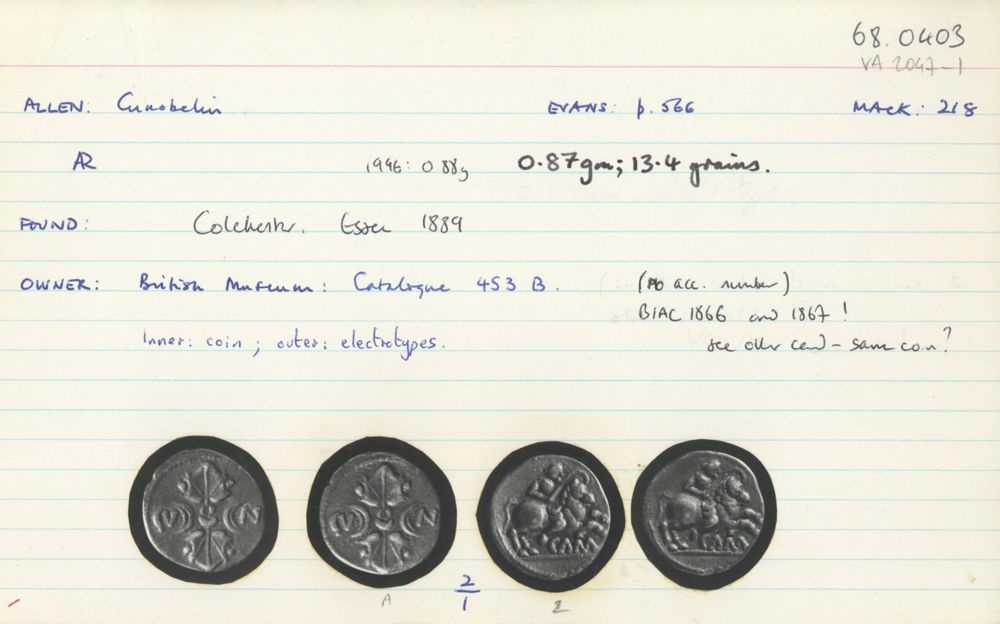 68.0403
VA 2047-1
ALLEN: Cunobelin EVANS: p. 566 MACK: 218
AR 1996: 0.88g 0.87gm; 13.4 grains.
FOUND: Colchester. Essex 1889
OWNER: British Museum: Catalogue 453 B. (no acc. number)
BIAC 1866 and 1867!
Inner: coin; outer: electrotypes. see other card - same coin?
CV N
CV N
CAM
CAM
A 2/1 2